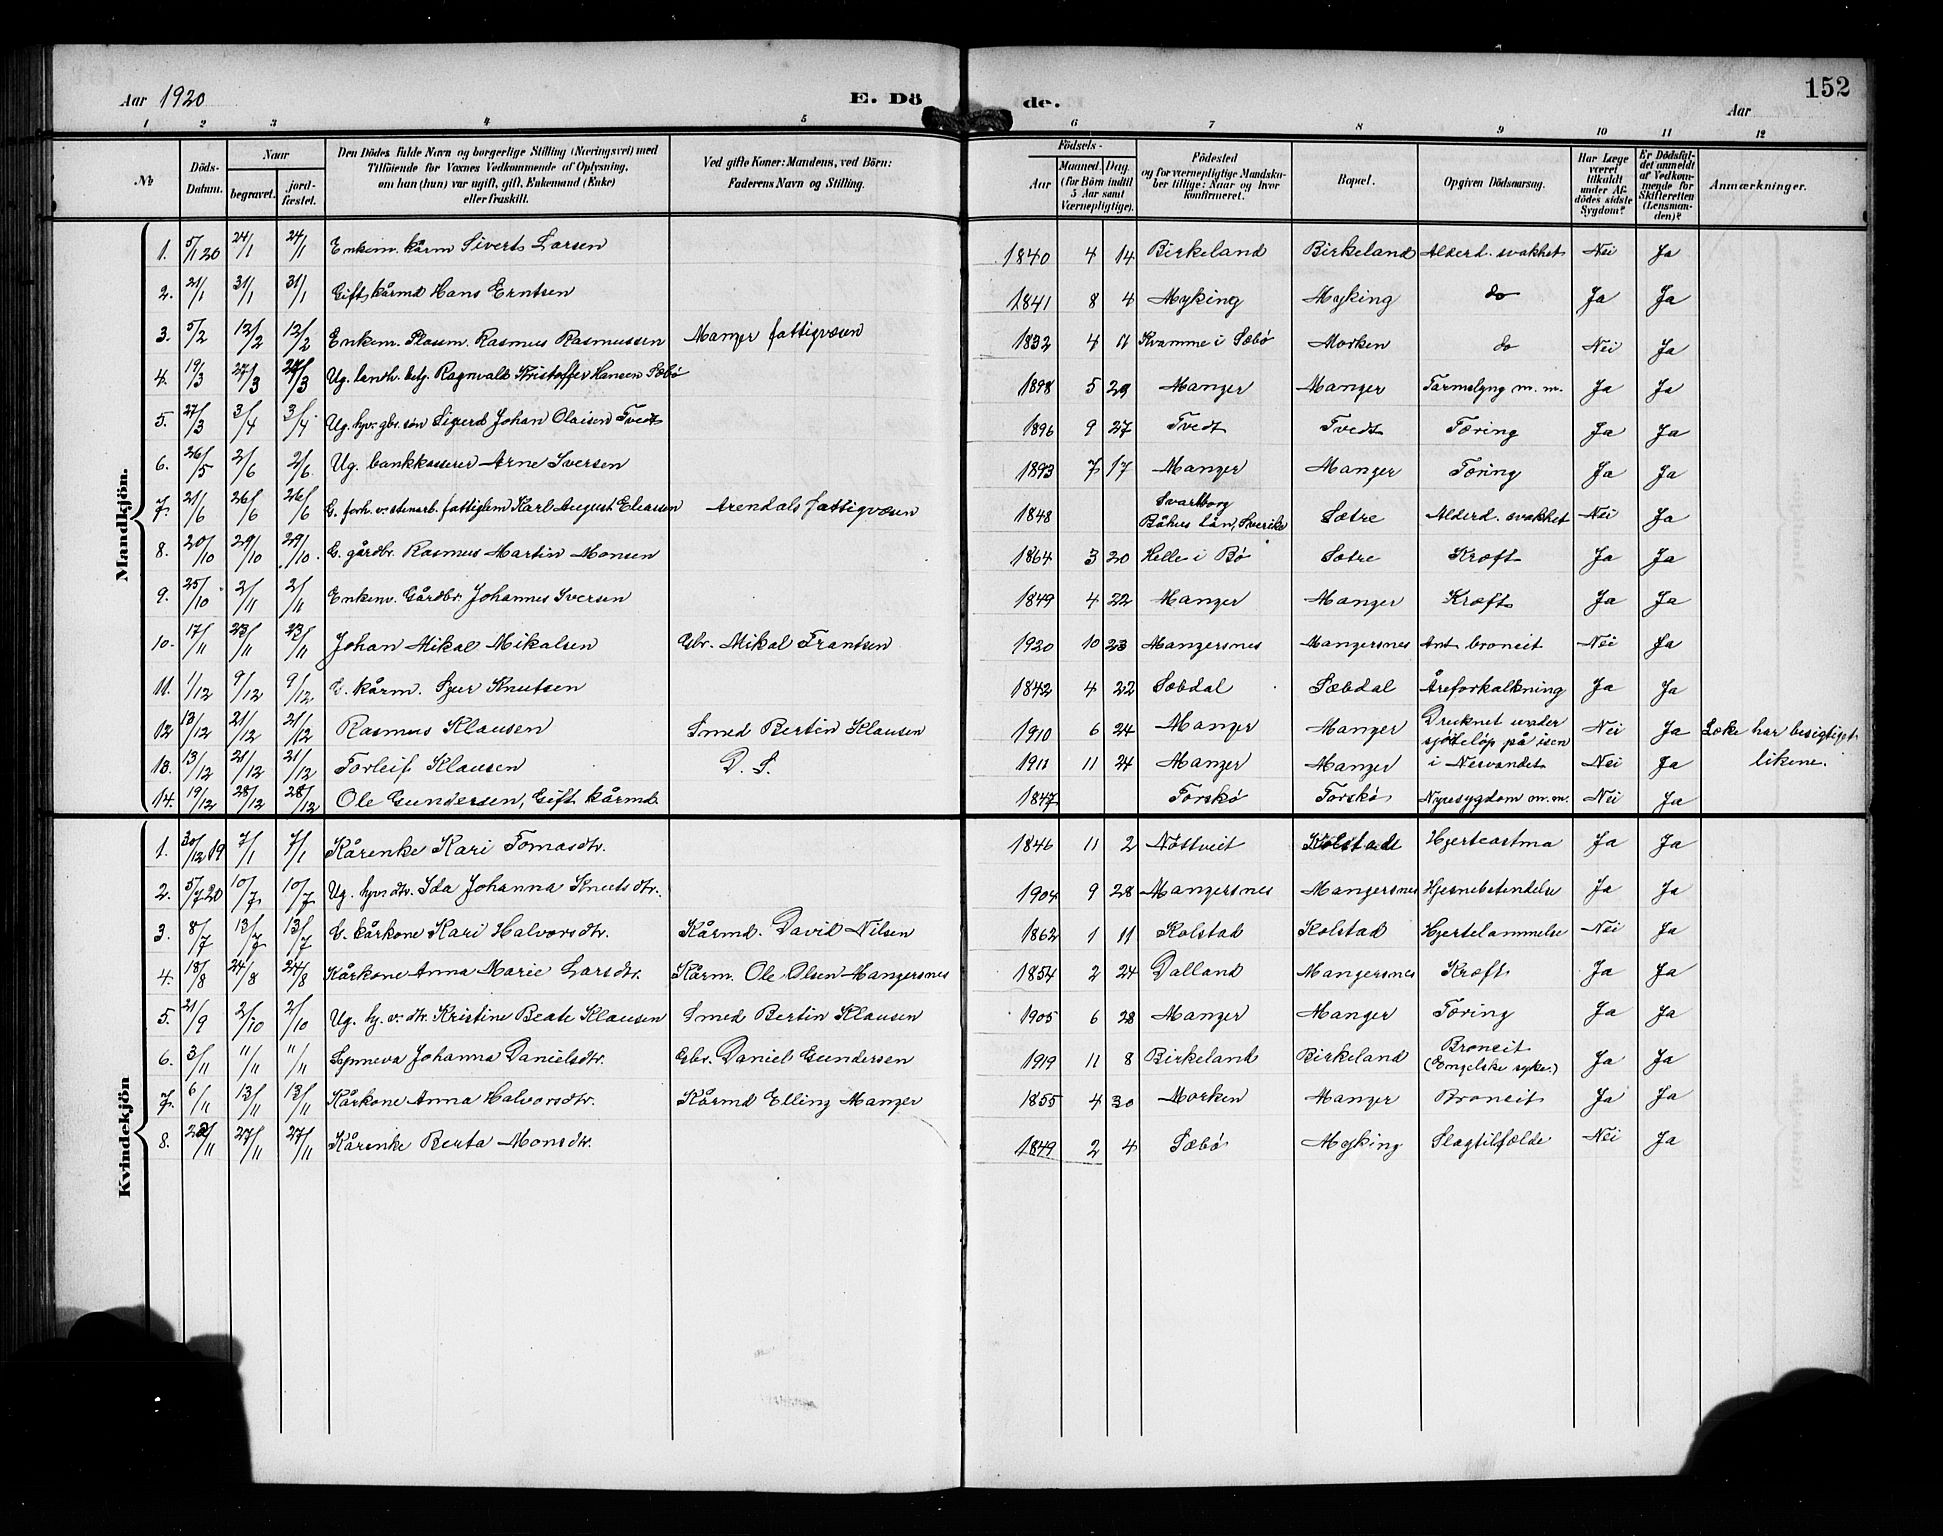 Aar 1920
E. Dö de.
Aar
152
1 2 3 4 5 6 7 8 9 10 11 12
No
Döds-Datum.
Naar
begravet. jord-fæstet.
Den Dödes fulde Navn og borgerlige Stilling (Næringsvei) med
Tilföiende for Voxnes Vedkommende af Oplysning,
om han (hun) var ugift, gift, Enkemand (Enke)
eller fraskilt.
Ved gifte Koner: Mandens, ved Börn:
Faderens Navn og Stilling.
Födsels-
Aar Maaned. Dag.
(for Börn indtil
5 Aar samt
Værnepligtige).
Födested
og for værnepligtige Mandska-
ber tillige: Naar og hvor
konfirmeret.
Bopæl.
Opgiven Dödsaarsag.
Har Læge
været
tilkaldt
under Af-
dödes sidste
Sygdom?
Er Dödsfal-
det anmeldt
af Vedkom-
mende for
Skifteretten
(Lensman-
den)?
Anmærkninger.
Mandkjön.
1. 5/1 20 24/1 24/1 Enkem. kårm Siverts Larsen 1840 4 14 Birkeland Birkeland Alderd. svakhet Nei Ja
2. 21/1 31/1 31/1 Gift kårmd Hans Erntsen 1841 8 4 Myking Myking do Ja Ja
3. 5/2 12/2 12/2 Enkem. Plassm. Rasmus Rasmussen Manger fattigvæsen 1832 4 11 Kvamme i Sæbø Morken do Nei Ja
4. 19/3 27/3 27/3 Ug. landh. betj. Ragnvald Kristoffer Hansen Sæbø 1898 5 29 Manger Manger Tarmslyng m. m. Ja Ja
5. 27/3 3/4 3/4 Ug. hjv. gbr. søn Sigurd Johan Olaisen Tvedt 1896 9 27 Tvedt Tvedt Tæring Ja Ja
6. 26/5 2/6 2/6 Ug. bankkasserer Arne Iversen 1893 7 17 Manger Manger Tæring Ja Ja
7. 21/6 26/6 26/6 G. forh. v. stenarb. fattiglem Karl August Eliassen Arendals fattigvæsen 1848 Svartborg
Båhus län, Sverike Sætre Alderd. svakhet Nei Ja
8. 20/10 29/10 29/10 G. gårdbr. Rasmus Martin Monsen 1864 3 20 Helle i Bø Sætre Kræft Ja Ja
9. 25/10 2/11 2/11 Enkem. Gårdbr. Johannes Iversen 1849 4 22 Manger Manger Kræft Ja Ja
10. 17/11 23/11 23/11 Johan Mikal Mikalsen Gbr. Mikal Frantsen 1920 10 23 Mangersnes Mangersnes Ant bronsit Nei Ja
11. 1/12 9/12 9/12 G. kårm. Sjur Knutsen 1842 4 22 Sæbdal Sæbdal Åreforkalkning Ja Ja
12 13/12 21/12 21/12 Rasmus Klausen Smed Bertin Klausen 1910 6 24 Manger Manger Druknet under
sjöteløp på isen Nei Ja Læke har besigtiget
13. 13/12 21/12 21/12 Torleif Klausen D. S. 1911 11 24 Manger Manger i Nesvandet Nei Ja likene.
14. 19/12 28/12 28/12 Ole Gundersen, Gift kårmd. 1847 Torskø Torskø Nyresygdom m. m. Nei Ja
Kvindekjön
1. 30/12 19 7/1 7/1 Kårenke Kari Tomasdtr. 1846 11 2 Nöttveit Kolstad Hjerteastma Ja Ja
2. 5/7 20 10/7 10/7 Ug. hjv. dtr. Ida Johanna Knutsdtr. 1904 9 28 Mangersnes Mangersnes Hjernebetendelse Ja Ja
3. 8/7 13/7 13/7 G. kårkone Kari Halvorsdtr. Kårmd. David Nilsen 1862 1 11 Kolstad Kolstad Hjertelammelse Nei Ja
4. 18/8 24/8 24/8 Kårkone Anna Marie Larsdtr. Kårm. Ole Olsen Mangersnes 1854 2 24 Dalland Mangersnes Kræft Ja Ja
5. 21/9 2/10 2/10 Ug. hj. v. dtr. Kristine Beate Klausen Smed Bertin Klausen 1905 6 28 Manger Manger Tæring Ja Ja
6. 3/11 11/11 11/11 Synneva Johanna Danielsdtr. Gbr. Daniel Gundersen 1919 11 8 Birkeland Birkeland Bronsit
(Engelske syke.) Ja Ja
7. 6/11 13/11 13/11 Kårkone Anna Halvorsdtr. Kårmd Elling Manger 1855 4 30 Morken Manger Bronsit Ja Ja
8. 27/11 27/11 Kårenke Berta Monsdtr. 1849 2 4 Sæbø Myking Slagtilfælde Nei Ja